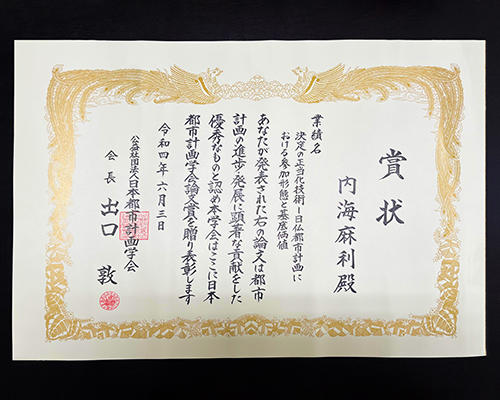 賞状
内海麻利殿
業績名
決定の正当化技術―日仏都市計画に
おける参加形態と基底価値
あなたが発表された右の論文は都市
計画の進歩・発展に顕著な貢献をした
優秀なものと認め本学会はここに日本
都市計画学会論文賞を贈り表彰します
令和四年六月三日
公益社団法人日本都市計画学会
会長 出口敦